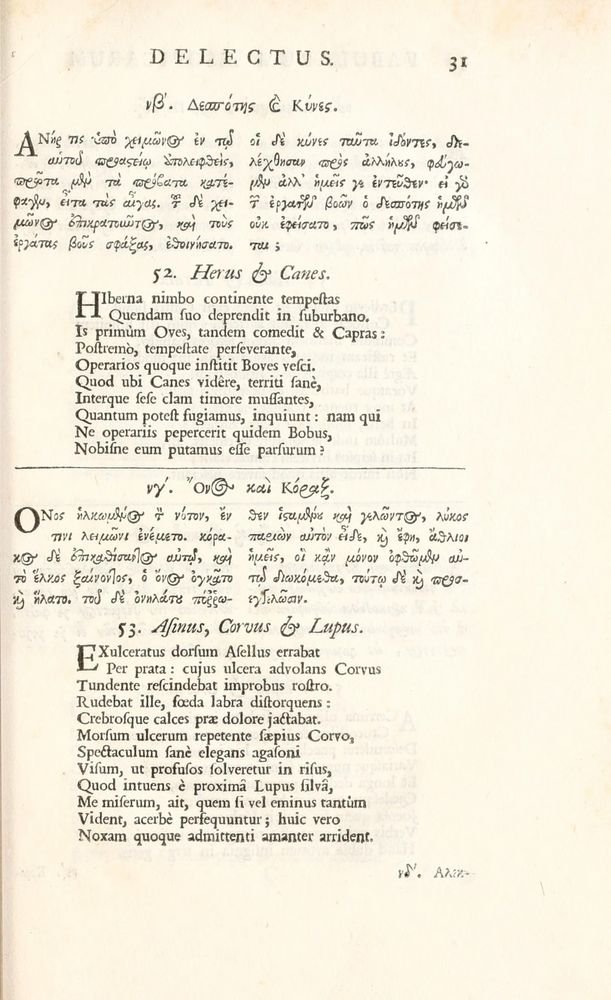 DELECTUS. 31
νβ΄. Δεσπότης & Κύνες.
ΑΝήρ τις ὑπὸ χειμῶνος ἐν τῷ
αὐτοῦ προαστείῳ ὑπολειφθεὶς,
πρῶτα μὲν τὰ πρόβατα κατέ-
φαγεν, εἶτα τὰς αἶγας. τοῦ δὲ χει-
μῶνος ἐπικρατοῦντος, καὶ τοὺς
ἐργάτας βοῦς σφάξας, ἐθοινήσατο.
οἱ δὲ κύνες ταῦτα ἰδόντες, διε-
λέχθησαν πρὸς ἀλλήλους, φεύγω-
μεν ἀλλ᾽ ἡμεῖς γε ἐντεῦθεν· εἰ γὰρ
τῶν ἐργατῶν βοῶν ὁ δεσπότης ἡμῶν
οὐκ ἐφείσατο, πῶς ἡμῶν φείσε-
ται;
52. Herus & Canes.
HIberna nimbo continente tempestas
Quendam suo deprendit in suburbano.
Is primùm Oves, tandem comedit & Capras:
Postremò, tempestate perseverante,
Operarios quoque institit Boves vesci.
Quod ubi Canes vidêre, territi sanè,
Interque sese clam timore mussantes,
Quantum potest fugiamus, inquiunt: nam qui
Ne operariis pepercerit quidem Bobus,
Nobisne eum putamus esse parsurum?
νγ΄. Ὄνος καὶ Κόραξ.
ΟΝος ἡλκωμένος τὸν νότον, ἔν
τινι λειμῶνι ἐνέμετο. κόρα-
κος δὲ ἐπικαθίσαντος αὐτῷ, καὶ
τὸ ἕλκος ξαίνοντος, ὁ ὄνος ὀγκᾶτο
καὶ ἥλατο. τοῦ δὲ ὀνηλάτου πόρρω-
θεν ἱσταμένου καὶ γελῶντος, λύκος
παριὼν αὐτὸν εἶδε, καὶ ἔφη, ἄθλιοι
ἡμεῖς, οἳ κᾂν μόνον ὀφθῶμεν αὐ-
τῷ διωκόμεθα, τούτῳ δὲ καὶ προσ-
εγέλωσιν.
53. Asinus, Corvus & Lupus.
EXulceratus dorsum Asellus errabat
Per prata: cujus ulcera advolans Corvus
Tundente rescindebat improbus rostro.
Rudebat ille, fœda labra distorquens:
Crebrosque calces præ dolore jactabat.
Morsum ulcerum repetente sæpius Corvo,
Spectaculum sanè elegans agasoni
Visum, ut profusos solveretur in risus,
Quod intuens è proximâ Lupus silvâ,
Me miserum, ait, quem si vel eminus tantùm
Vident, acerbè persequuntur; huic vero
Noxam quoque admittenti amanter arrident.
νδ΄. Αλεκ-